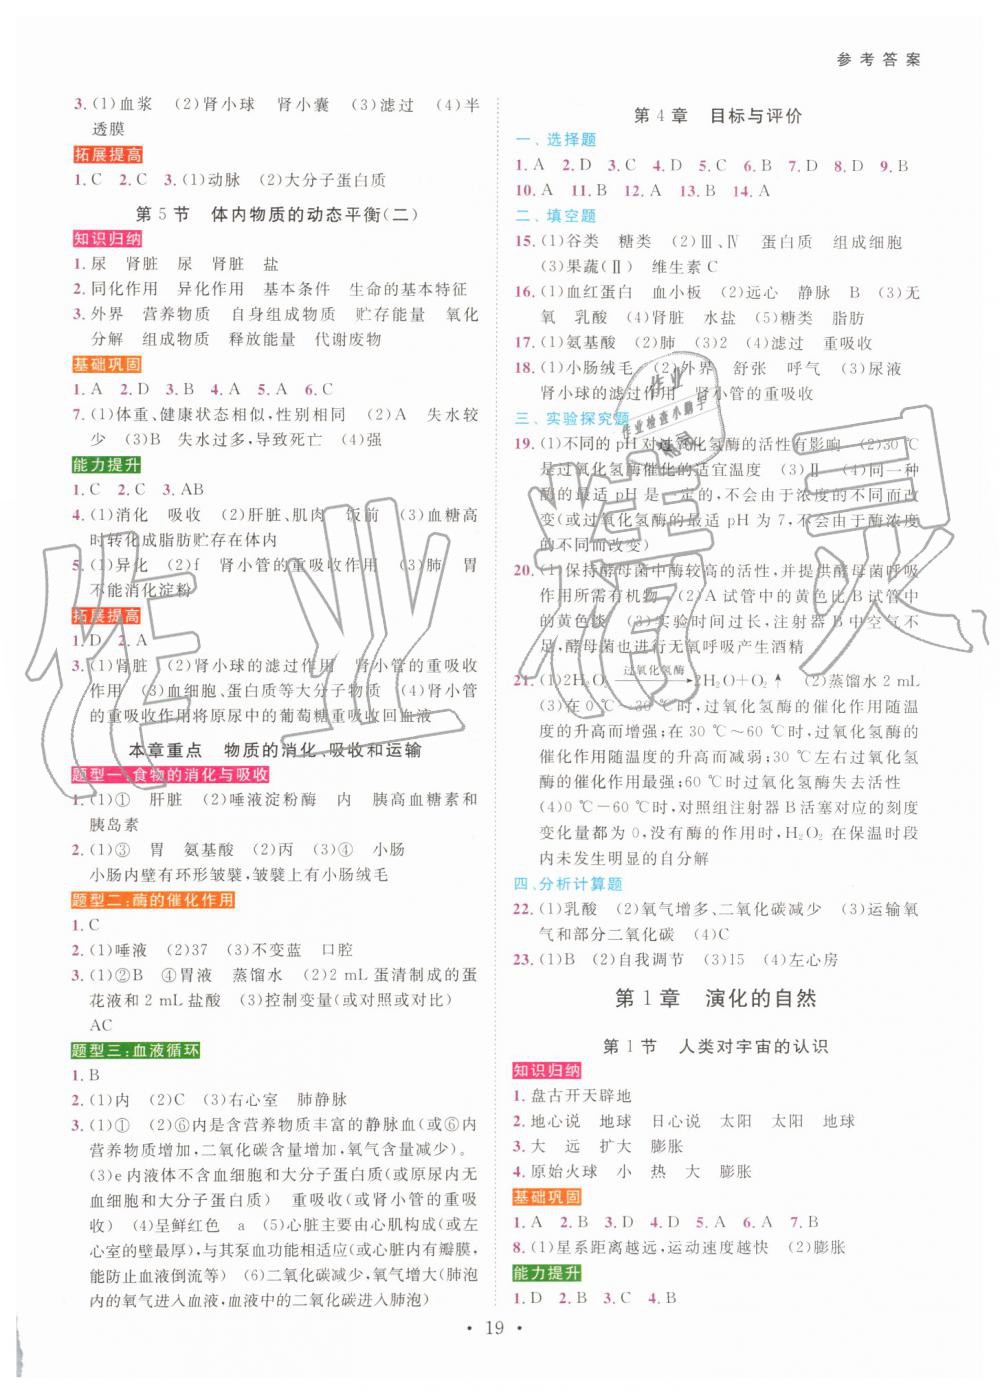 参考答案
3. (1)血浆 (2)肾小球 肾小囊 (3)滤过 (4)半
透膜
拓展提高
1. C 2. C 3. (1)动脉 (2)大分子蛋白质
第5节 体内物质的动态平衡(二)
知识归纳
1. 尿 肾脏 尿 肾脏 盐
2. 同化作用 异化作用 基本条件 生命的基本特征
3. 外界 营养物质 自身组成物质 贮存能量 氧化
分解 组成物质 释放能量 代谢废物
基础巩固
1. A 2. D 3. B 4. A 5. A 6. C
7. (1)体重、健康状态相似,性别相同 (2)A 失水较
少 (3)B 失水过多,导致死亡 (4)强
能力提升
1. C 2. C 3. AB
4. (1)消化 吸收 (2)肝脏、肌肉 饭前 (3)血糖高
时转化成脂肪贮存在体内
5. (1)异化 (2)f 肾小管的重吸收作用 (3)肺 胃
不能消化淀粉
拓展提高
1. D 2. A
3. (1)肾脏 (2)肾小球的滤过作用 肾小管的重吸收
作用 (3)血细胞、蛋白质等大分子物质 (4)肾小管
的重吸收作用将原尿中的葡萄糖重吸收回血液
本章重点 物质的消化、吸收和运输
题型一:食物的消化与吸收
1. (1)① 肝脏 (2)唾液淀粉酶 内 胰高血糖素和
胰岛素
2. (1)③ 胃 氨基酸 (2)丙 (3)④ 小肠
小肠内壁有环形皱襞,皱襞上有小肠绒毛
题型二:酶的催化作用
1. C
2. (1)唾液 (2)37 (3)不变蓝 口腔
3. (1)②B ④胃液 蒸馏水 (2)2 mL蛋清制成的蛋
花液和2 mL盐酸 (3)控制变量(或对照或对比)
AC
题型三:血液循环
1. B
2. (1)内 (2)C (3)右心室 肺静脉
3. (1)① (2)⑥内是含营养物质丰富的静脉血(或⑥内
营养物质增加,二氧化碳含量增加,氧气含量减少)。
(3)e内液体不含血细胞和大分子蛋白质(或原尿内无
血细胞和大分子蛋白质) 重吸收(或肾小管的重吸
收) (4)呈鲜红色 a (5)心脏主要由心肌构成(或左
心室的壁最厚),与其泵血功能相符合(或心脏内有瓣膜,
能防止血液倒流等) (6)二氧化碳减少,氧气增大(肺泡
内的氧气进入血液,血液中的二氧化碳进入肺泡)
第4章 目标与评价
一、选择题
1. A 2. D 3. C 4. D 5. C 6. B 7. D 8. D 9. B
10. A 11. B 12. A 13. B 14. A
二、填空题
15. (1)谷类 糖类 (2)Ⅲ、Ⅳ 蛋白质 组成细胞
(3)果蔬(Ⅱ) 维生素C
16. (1)血红蛋白 血小板 (2)远心 静脉 B (3)无
氧 乳酸 (4)肾脏 水盐 (5)糖类 脂肪
17. (1)氨基酸 (2)肺 (3)2 (4)滤过 重吸收
18. (1)小肠绒毛 (2)外界 舒张 呼气 (3)尿液
肾小球的滤过作用 肾小管的重吸收
三、实验探究题
19. (1)不同的pH对过氧化氢酶的活性有影响 (2)30℃
是过氧化氢酶催化的适宜温度 (3)Ⅱ (4)同一种
酶的最适pH是一定的,不会由于浓度的不同而改
变(或过氧化氢酶的最适pH为7,不会由于酶浓度
的不同而改变)
20. (1)保持酵母菌中酶较高的活性,并提供酵母菌呼吸
作用所需有机物 (2)A试管中的黄色比B试管中
的黄色淡 (3)实验时间过长,注射器B中空气不
足,酵母菌也进行无氧呼吸产生酒精
21. (1)2H₂O₂ 过氧化氢酶→ 2H₂O+O₂↑ (2)蒸馏水2 mL
(3)在0℃~30℃时,过氧化氢酶的催化作用随温
度的升高而增强;在30℃~60℃时,过氧化氢酶的
催化作用随温度的升高而减弱;30℃左右过氧化氢
酶的催化作用最强;60℃时过氧化氢酶失去活性
(4)0℃~60℃时,对照组注射器B活塞对应的刻度
变化量都为0,无酶的作用时,H₂O₂在保温时段
内未发生明显的自分解
四、分析计算题
22. (1)乳酸 (2)氧气增多、二氧化碳减少 (3)运输氧
气和部分二氧化碳 (4)C
23. (1)B (2)自我调节 (3)15 (4)左心房
第1章 演化的自然
第1节 人类对宇宙的认识
知识归纳
1. 盘古开天辟地
2. 地心说 地球 日心说 太阳 太阳 地球
3. 大 远 扩大 膨胀
4. 原始火球 小 热 大 膨胀
基础巩固
1. A 2. B 3. D 4. D 5. A 6. A 7. B
8. (1)星系距离越远,运动速度越快 (2)膨胀
能力提升
1. D 2. B 3. C 4. B
· 19 ·
作业精灵
作业
作业检查小助手